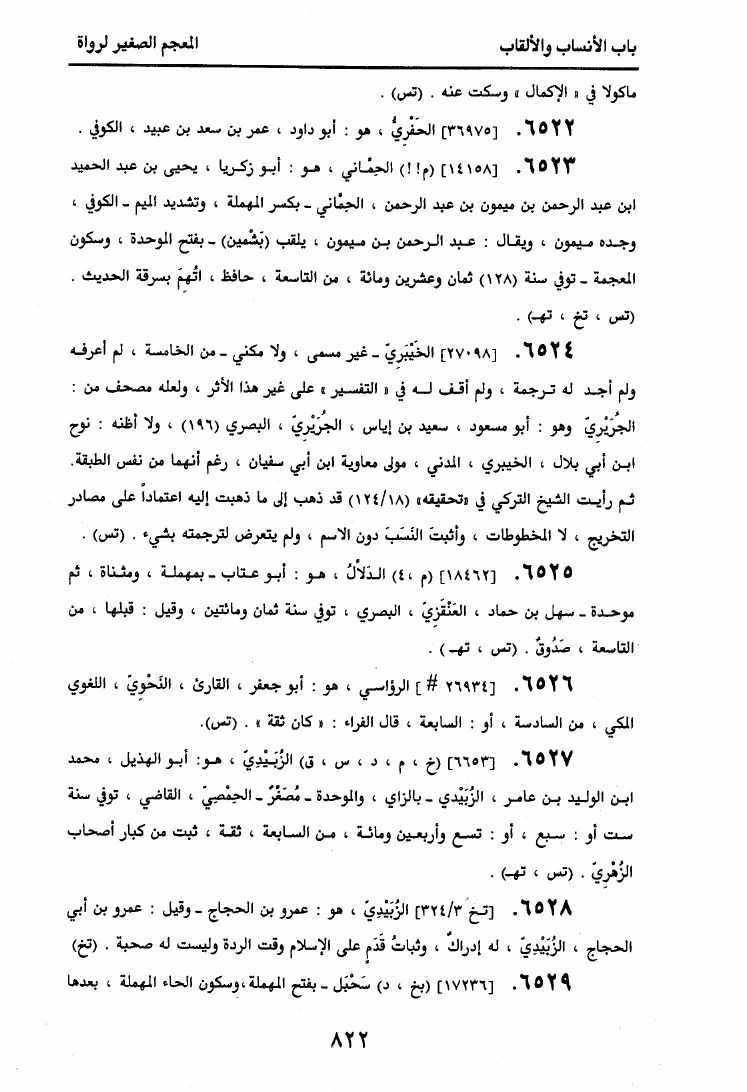 باب الأنساب والألقاب
المعجم الصغير لرواة
ماكولا في « الإكمال » وسكت عنه . (تس) .
٦٥٢٢. [٣٦٩٧٥] الحَفْرِيُّ ، هو : أبو داود ، عمر بن سعد بن عبيد ، الكوفي .
٦٥٢٣. [١٤١٥٨] (م!!) الحِمَّاني ، هو : أبو زكريا ، يحيى بن عبد الحميد
ابن عبد الرحمن بن ميمون بن عبد الرحمن ، الحِمَّاني ـ بكسر المهملة ، وتشديد الميم ـ الكوفي ،
وجده ميمون ، ويقال : عبد الرحمن بن ميمون ، يلقب (بَشْمين) ـ بفتح الموحدة ، وسكون
المعجمة ـ توفي سنة (١٢٨) ثمان وعشرين ومائة ، من التاسعة ، حافظ ، اتُهِمَ بسرقة الحديث .
(تس ، تخ ، تهـ) .
٦٥٢٤. [٢٧٠٩٨] الخَيْبَرِيّ ـ غير مسمى ، ولا مكني ـ من الخامسة ، لم أعرفه
ولم أجد له ترجمة ، ولم أقف له في « التفسير » على غير هذا الأثر ، ولعله مصحف من :
الجُرَيْرِيّ وهو : أبو مسعود ، سعيد بن إياس ، الجُرَيْرِيّ ، البصري (١٩٦) ، ولا أظنه : نوح
ابن أبي بلال ، الخيبري ، المدني ، مولى معاوية ابن أبي سفيان ، رغم أنهما من نفس الطبقة.
ثم رأيت الشيخ التركي في «تحقيقه» (١٢٤/١٨) قد ذهب إلى ما ذهبت إليه اعتماداً على مصادر
التخريج ، لا المخطوطات ، وأثبتَ النَسَبَ دون الاسم ، ولم يتعرض لترجمته بشيء . (تس) .
٦٥٢٥. [١٨٤٦٢] (م ،٤) الدَلاَّلُ ، هو : أبو عتاب ـ بمهملة ، ومثناة ، ثم
موحدة ـ سهل بن حماد ، العَنْقَزِيّ ، البصري ، توفي سنة ثمان ومائتين ، وقيل : قبلها ، من
التاسعة ، صَدُوقٌ . (تس ، تهـ) .
٦٥٢٦. [٢٦٩٣٤ #] الرؤاسي ، هو : أبو جعفر ، القارئ ، النَحْوِيّ ، اللغوي
المكي ، من السادسة ، أو : السابعة ، قال الفراء : « كان ثقة » . (تس).
٦٥٢٧. [٦٦٥٣] (خ ، م ، د ، س ، ق) الزُّبَيْدِيّ ، هو: أبو الهذيل ، محمد
ابن الوليد بن عامر ، الزُّبَيْدي ـ بالزاي ، والموحدة ـ مُصَغَّرٌ ـ الحِمْصِيّ ، القاضي ، توفي سنة
ست أو : سبع ، أو : تسع وأربعين ومائة ، من السابعة ، ثقة ، ثبت من كبار أصحاب
الزُهْرِيّ . (تس ، تهـ) .
٦٥٢٨. [تخ ٣٢٤/٣] الزُبَيْدِيّ ، هو : عمرو بن الحجاج ـ وقيل : عمرو بن أبي
الحجاج ، الزُبَيْدِيّ ، له إدراكٌ ، وثباتُ قَدَمٍ على الإسلام وقت الردة وليست له صحبة . (تخ)
٦٥٢٩. [١٧٢٣٦] (بخ ، د) سَحْبَل ـ بفتح المهملة، وسكون الحاء المهملة ، بعدها
٨٢٢